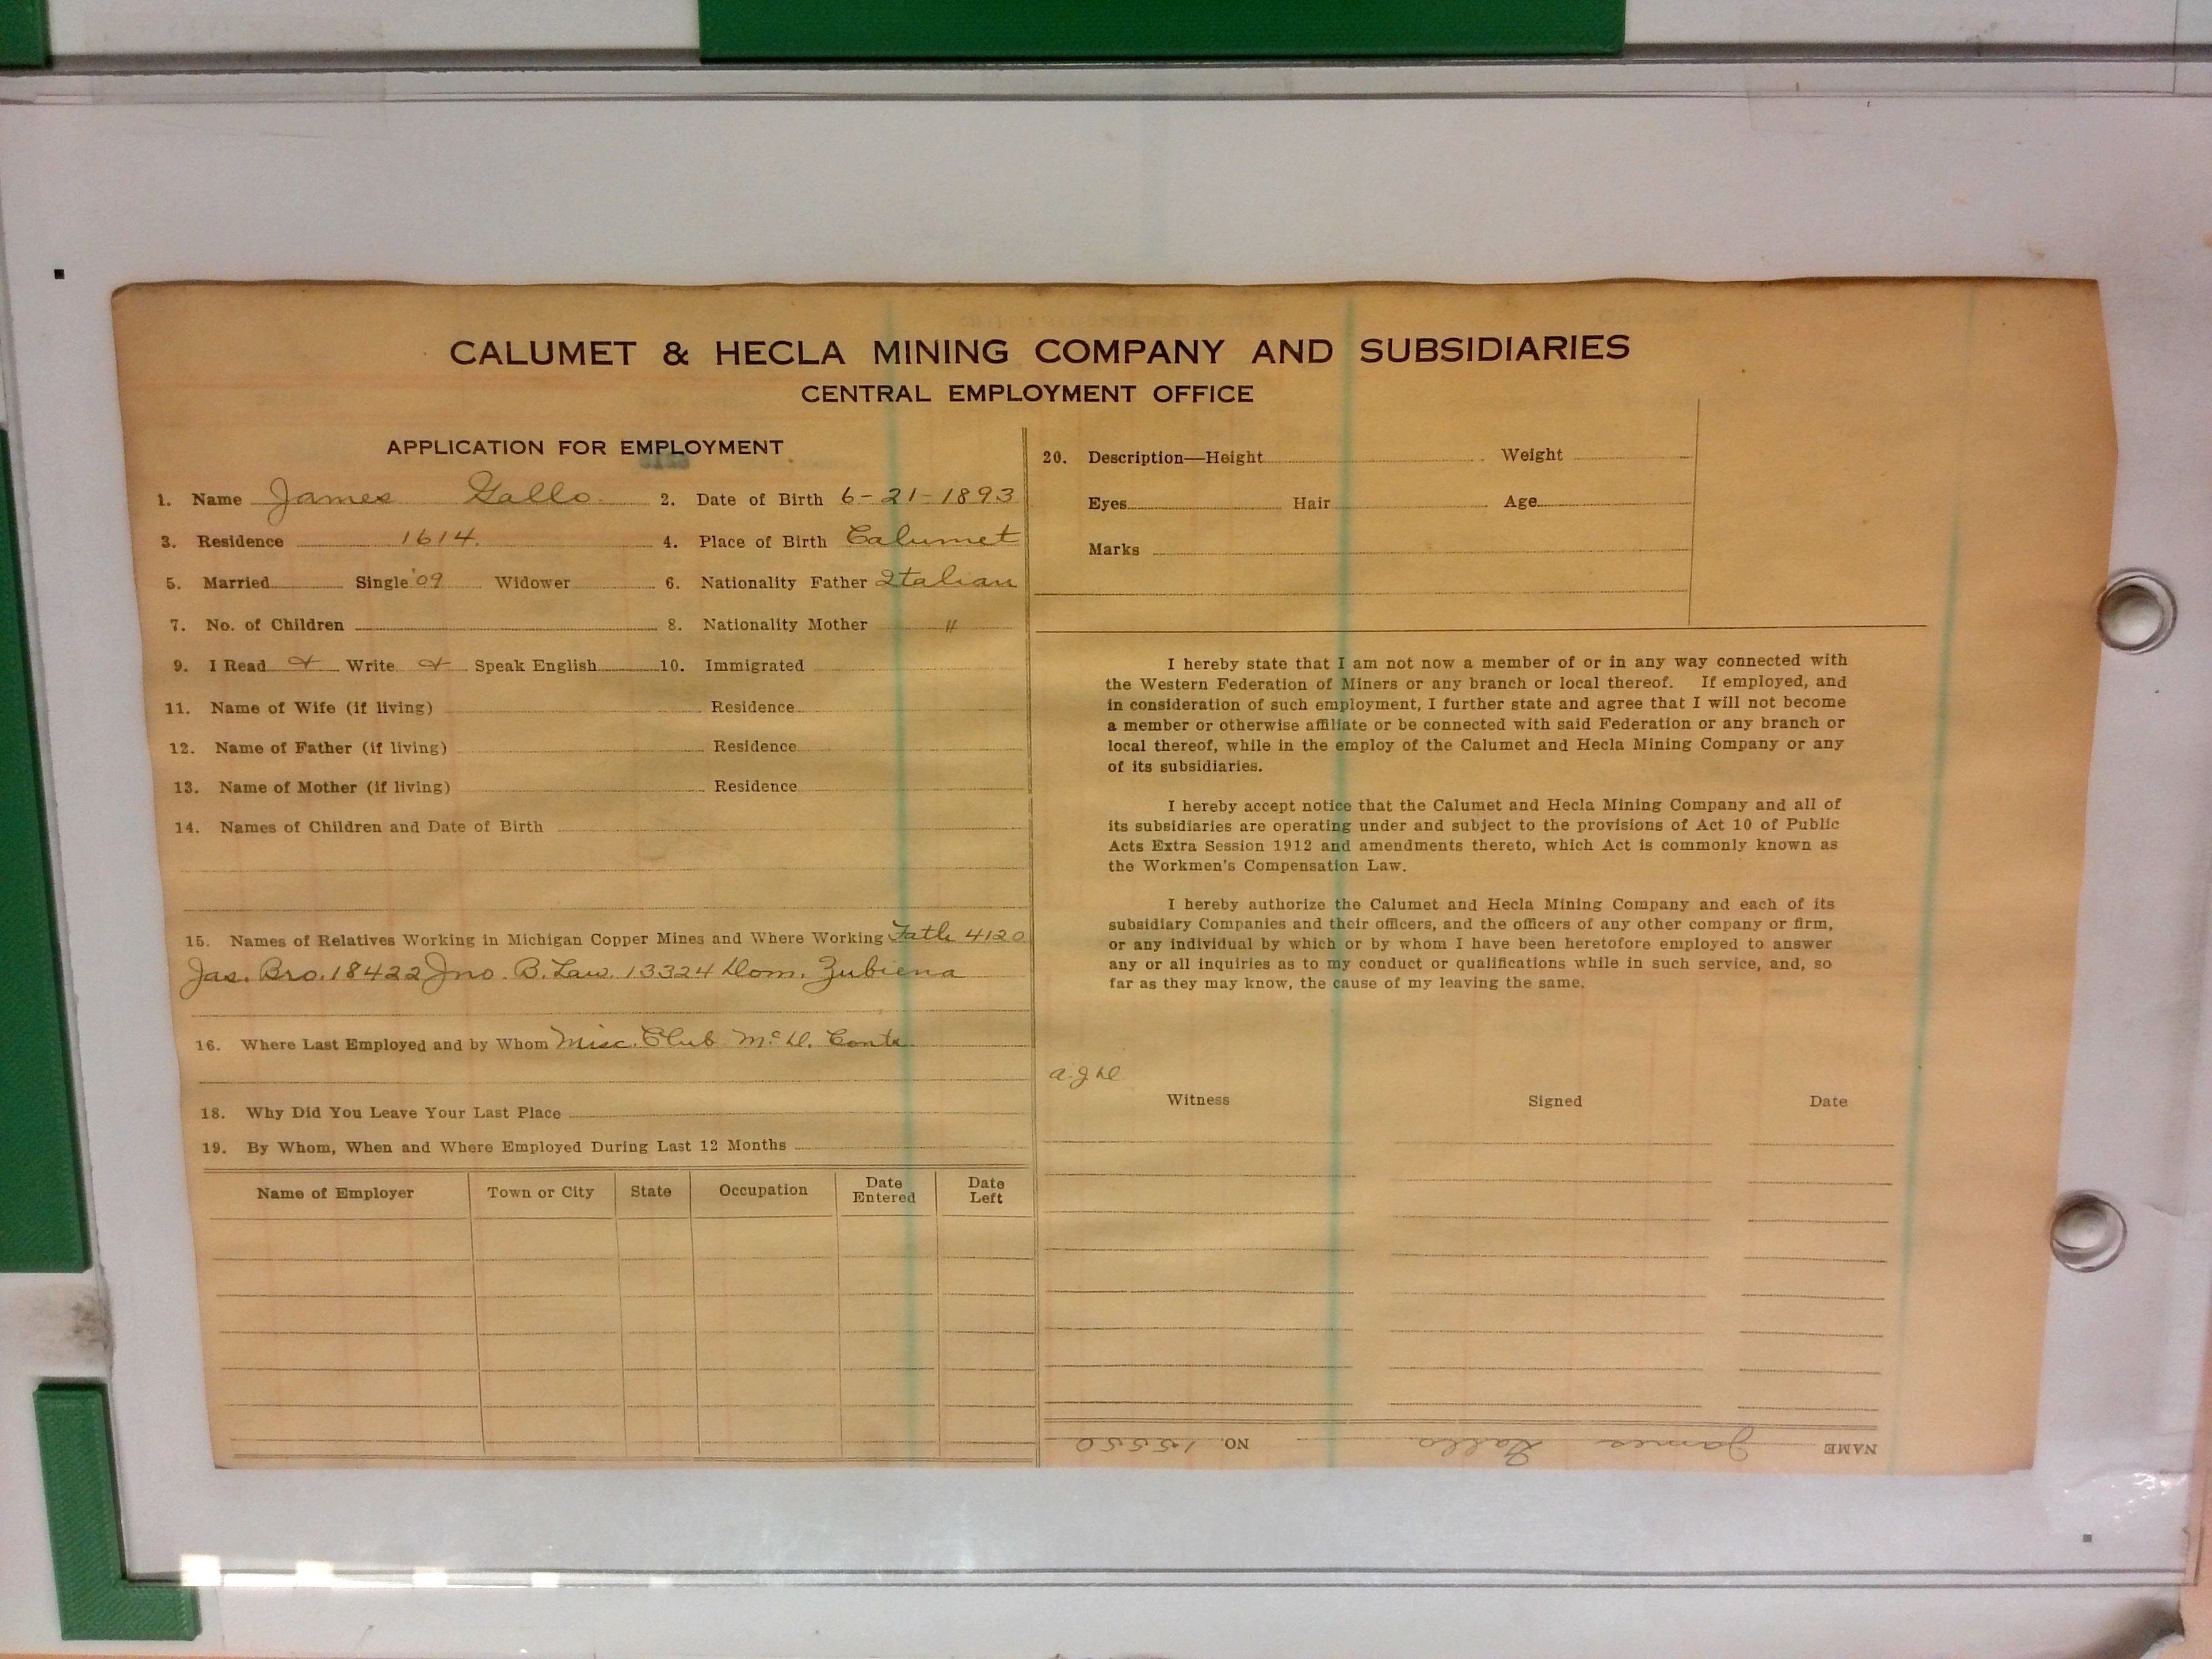 CALUMET & HECLA MINING COMPANY AND SUBSIDIARIES
CENTRAL EMPLOYMENT OFFICE
APPLICATION FOR EMPLOYMENT
1. Name James Gallo. 2. Date of Birth 6-21-1893
3. Residence 1614. 4. Place of Birth Calumet
5. Married Single '09 Widower 6. Nationality Father Italian
7. No. of Children 8. Nationality Mother "
9. I Read Write Speak English 10. Immigrated
11. Name of Wife (if living) Residence
12. Name of Father (if living) Residence
13. Name of Mother (if living) Residence
14. Names of Children and Date of Birth
15. Names of Relatives Working in Michigan Copper Mines and Where Working Fath 4120
Jas. Bro. 18422 Jno. B. Law. 13324 Dom. Zubiena
16. Where Last Employed and by Whom Misc. Club McD. Contr.
18. Why Did You Leave Your Last Place
19. By Whom, When and Where Employed During Last 12 Months
Name of Employer Town or City State Occupation Date Entered Date Left
20. Description—Height Weight
Eyes Hair Age
Marks
I hereby state that I am not now a member of or in any way connected with
the Western Federation of Miners or any branch or local thereof. If employed, and
in consideration of such employment, I further state and agree that I will not become
a member or otherwise affiliate or be connected with said Federation or any branch or
local thereof, while in the employ of the Calumet and Hecla Mining Company or any
of its subsidiaries.
I hereby accept notice that the Calumet and Hecla Mining Company and all of
its subsidiaries are operating under and subject to the provisions of Act 10 of Public
Acts Extra Session 1912 and amendments thereto, which Act is commonly known as
the Workmen's Compensation Law.
I hereby authorize the Calumet and Hecla Mining Company and each of its
subsidiary Companies and their officers, and the officers of any other company or firm,
or any individual by which or by whom I have been heretofore employed to answer
any or all inquiries as to my conduct or qualifications while in such service, and, so
far as they may know, the cause of my leaving the same.
Witness Signed Date
NAME James Gallo. NO. 15550